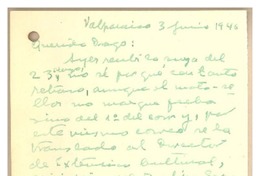 Valparaíso 3 Junio 1946
Querido Drago:
Ayer recibí la suya del
23, no sé por qué con tanto
retraso, aunque el mata-se-
llos no marque fecha
sino del 1º del corr y, por
este mismo correo se la
traslado al Director
de Extensión Cultural,